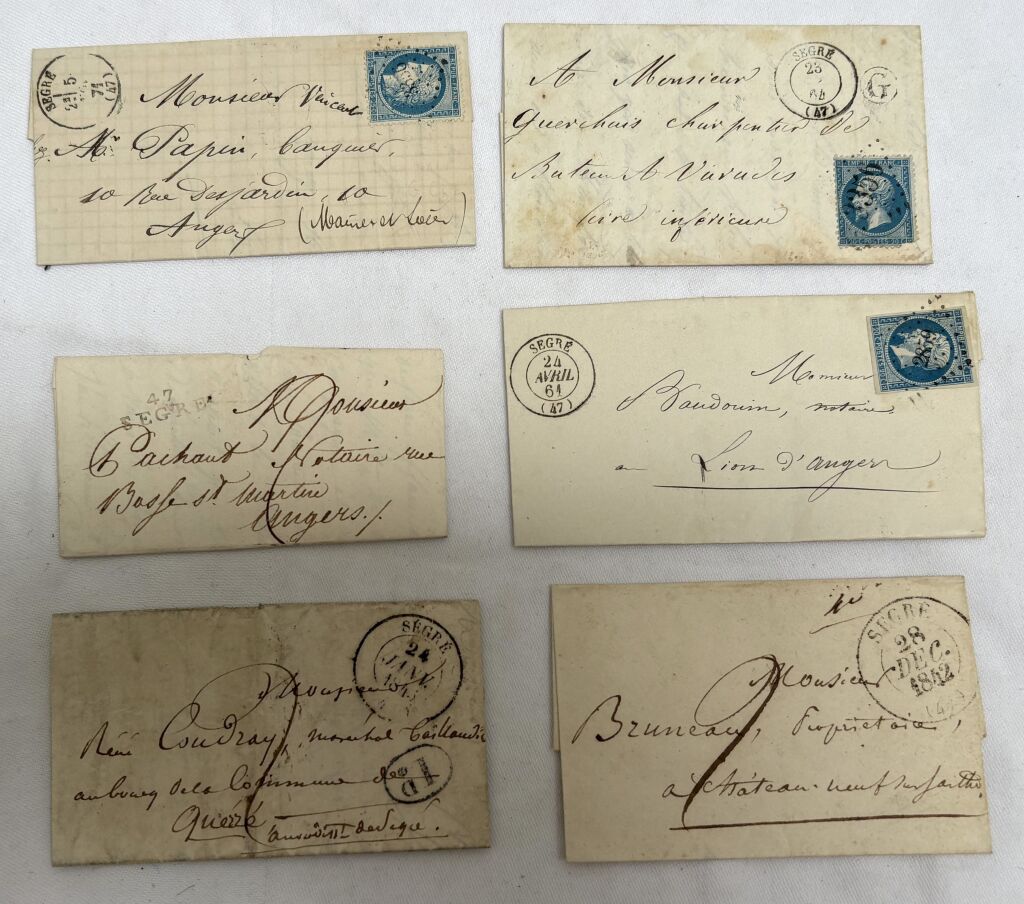 SEGRÉ
2E/ 5
71
(47)
Monsieur Vincent
Papin, banquier,
10 Rue Desjardin, 10
Angers (Maine et Loire)
SEGRÉ
23
64
(47)
G
A Monsieur
Guerchais charpentier de
Bateau A Varades
Loire inférieure
EMPIRE FRANC
20 C POSTES 20 C
47
SEGRÉ
Monsieur
Pachaut Notaire rue
Basse St Martin
Angers
SEGRÉ
24
AVRIL
61
(47)
2879
Monsieur
Baudouin, notaire
au Lion d'Angers
SEGRÉ
24
JANV.
Monsieur
René Coudray, maréchal Taillandier
au bourg de la Commune de
Querré
SEGRÉ
28
DEC.
1842
Monsieur
Bruneau, Propriétaire,
à Château-neuf sur Sarthe.